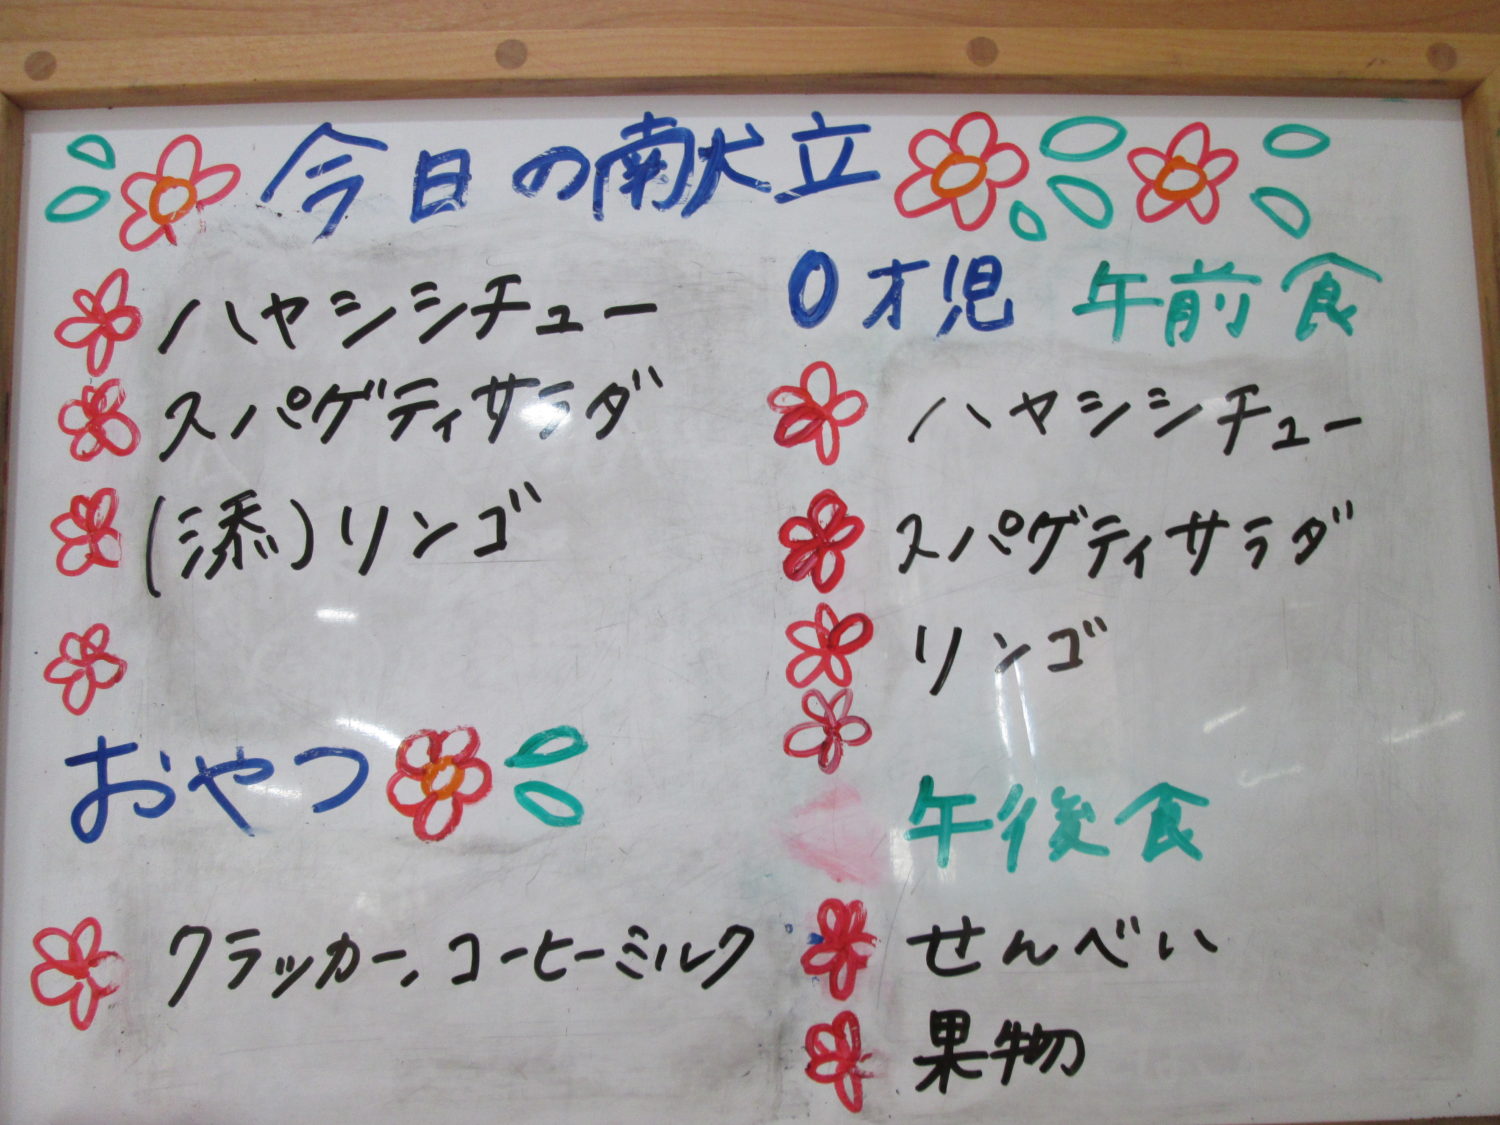 今日の献立
ハヤシシチュー
スパゲティサラダ
(添)リンゴ
おやつ
クラッカー、コーヒーミルク
0才児 午前食
ハヤシシチュー
スパゲティサラダ
リンゴ
午後食
せんべい
果物